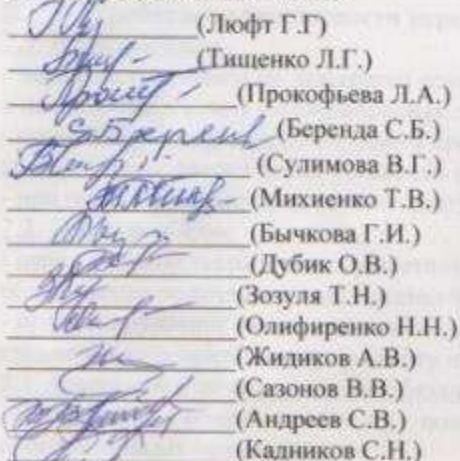 (Люфт Г.Г)
(Тищенко Л.Г.)
(Прокофьева Л.А.)
(Беренда С.Б.)
(Сулимова В.Г.)
(Михиенко Т.В.)
(Бычкова Г.И.)
(Дубик О.В.)
(Зозуля Т.Н.)
(Олифиренко Н.Н.)
(Жидиков А.В.)
(Сазонов В.В.)
(Андреев С.В.)
(Кадников С.Н.)